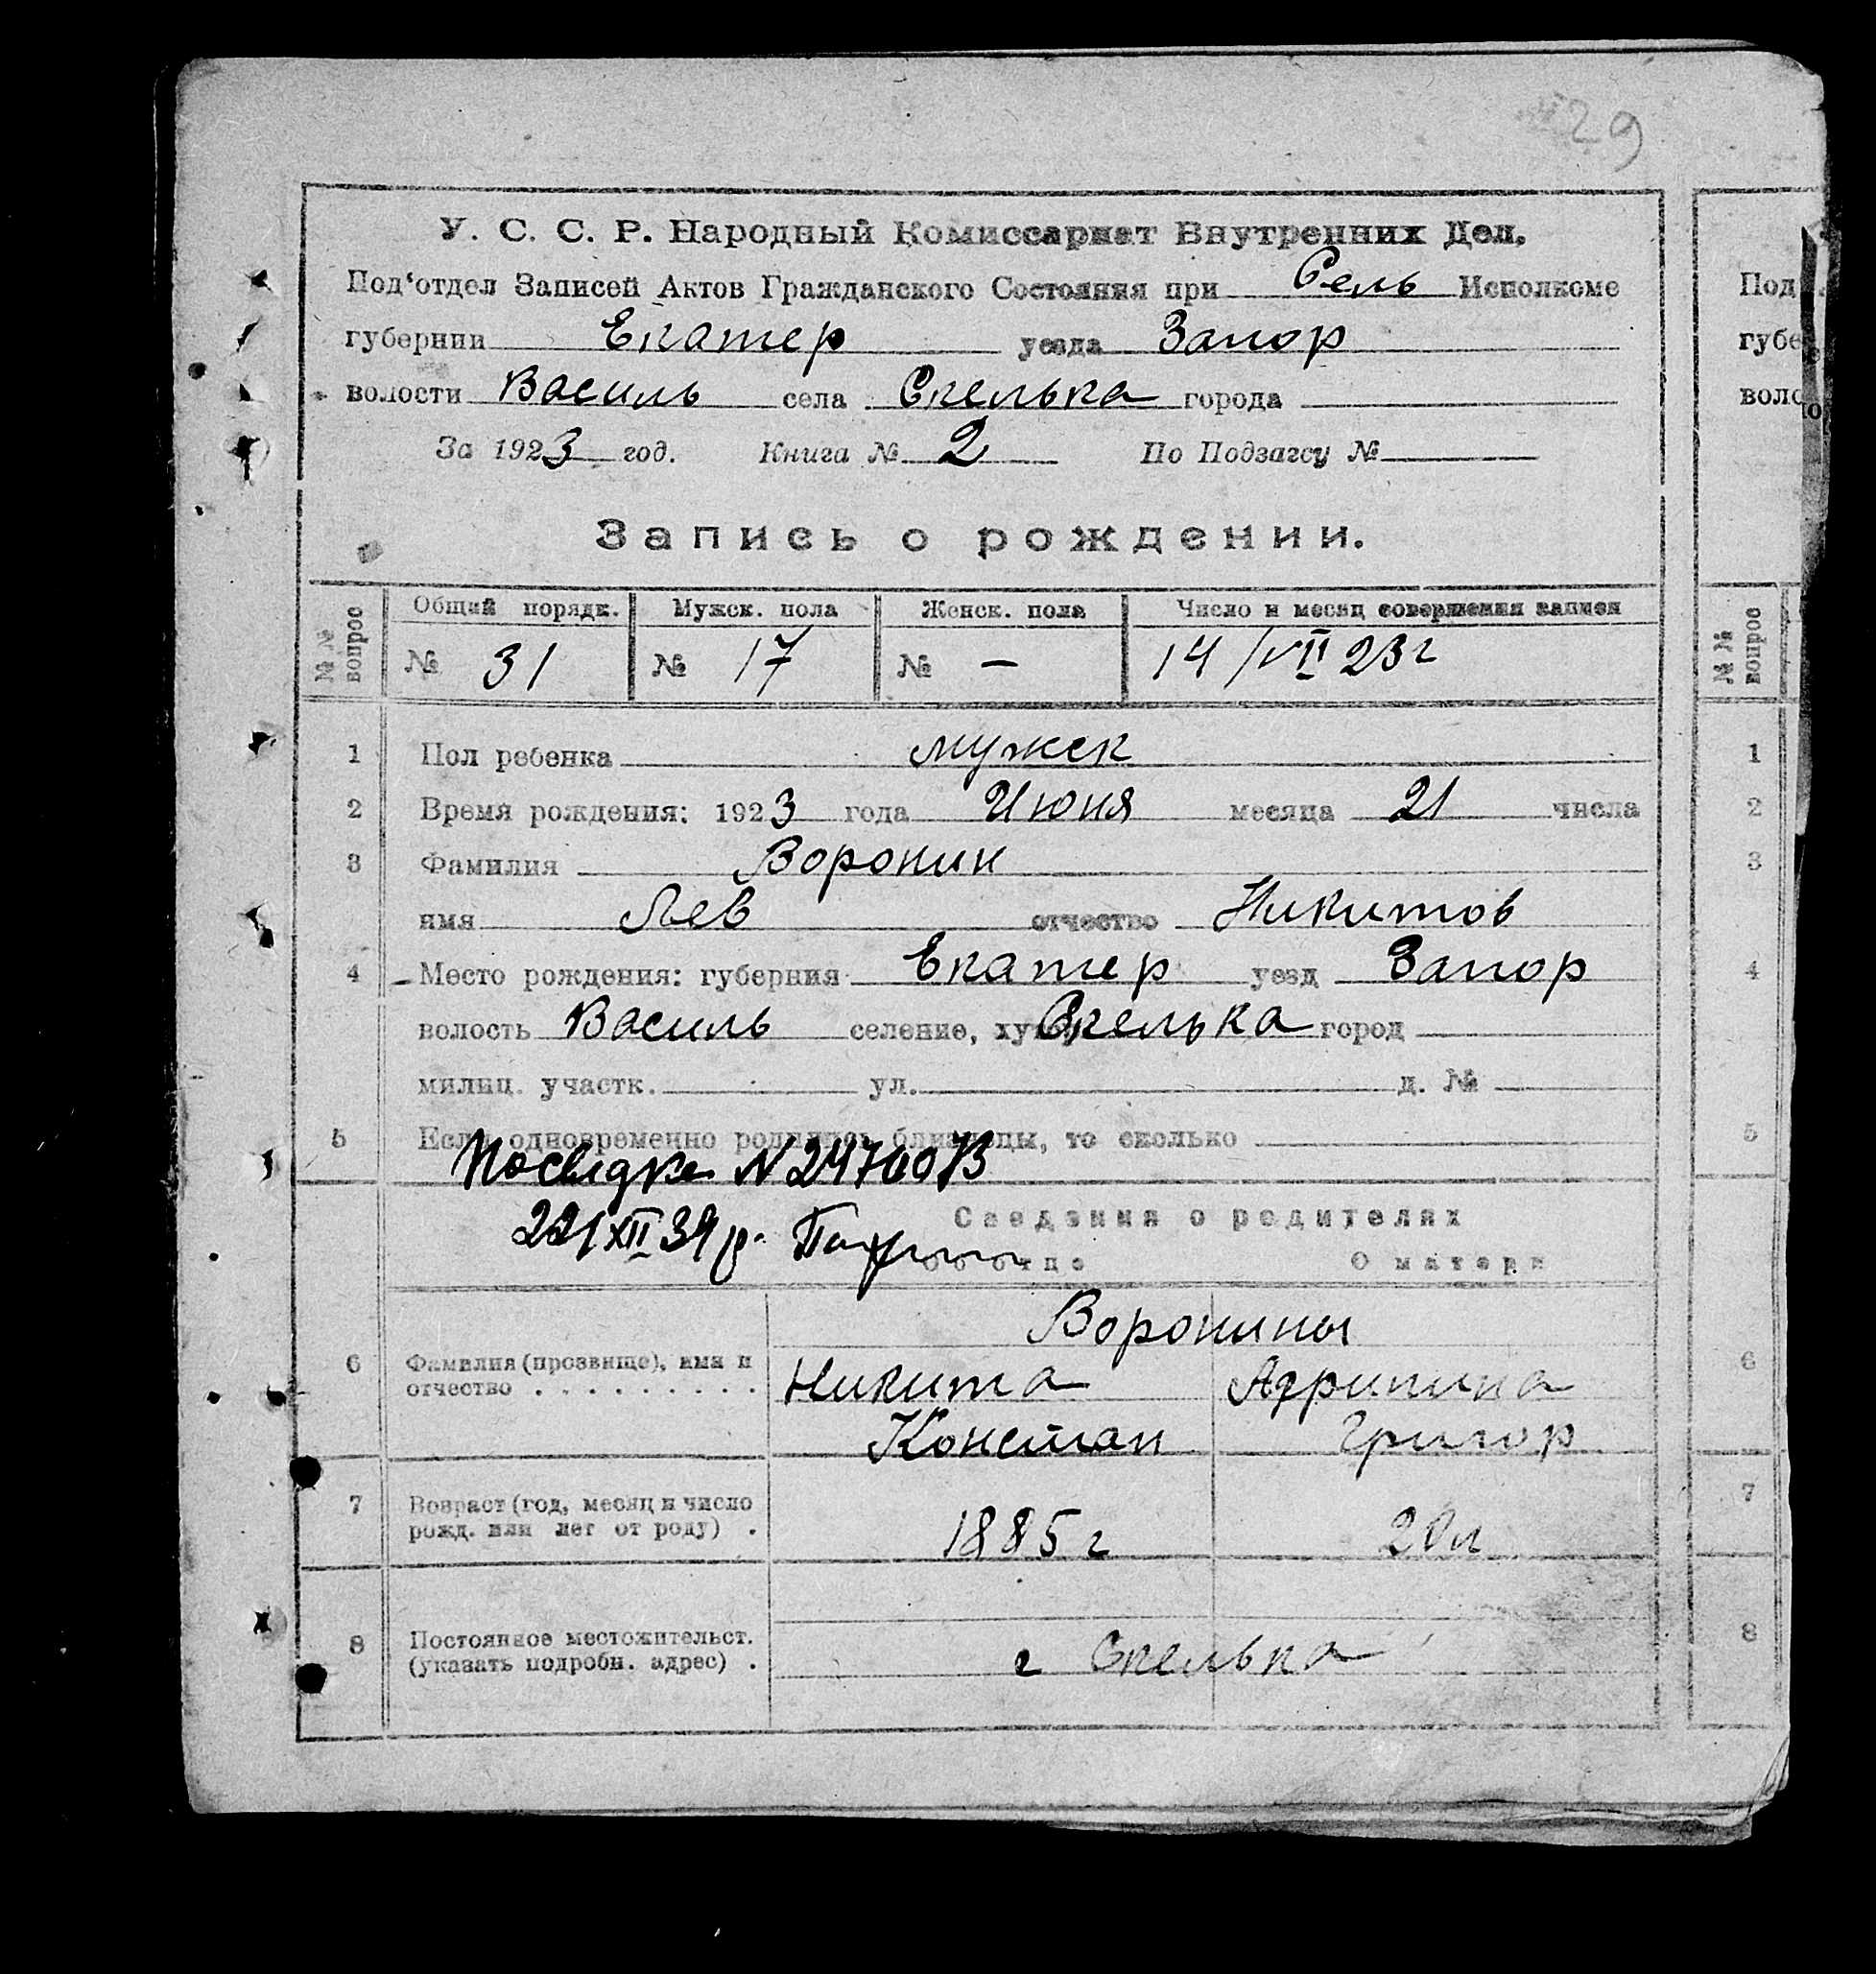 29
У. С. С. Р. Народный Комиссариат Внутренних Дел.
Под‘отдел Записей Актов Гражданского Состояния при Сель Исполкоме
губернии Екатер уезда Запор
волости Василь села Скелька города
За 1923 год. Книга № 2 По Подзагсу №
Запись о рождении.
№ № вопрос Общий порядк. Мужск. пола Женск. пола Число и месяц совершения записи
№ 31 № 17 № — 14/VII 23г
1 Пол ребенка мужск
2 Время рождения: 1923 года Июня месяца 21 числа
3 Фамилия Воронин
имя Лев отчество Никитов
4 Место рождения: губерния Екатер уезд Запор
волость Василь селение, хут Скелька город
милиц. участк. ул. д. №
5 Если одновременно родились близнецы, то сколько
Посвідка N
XII 39 р.
Сведения о родителях
Об отце О матери
Воронины
6 Фамилия (прозвище), имя и Никита Агрипина
отчество . . . . . . . . . Констан Григор
7 Возраст (год, месяц и число
рожд. или лет от роду) . 1885 г 20л
8 Постоянное местожительст.
(указать подробн. адрес) . с Скелька
Под
губе
воло
№ № вопрос
1
2
3
4
5
6
7
8